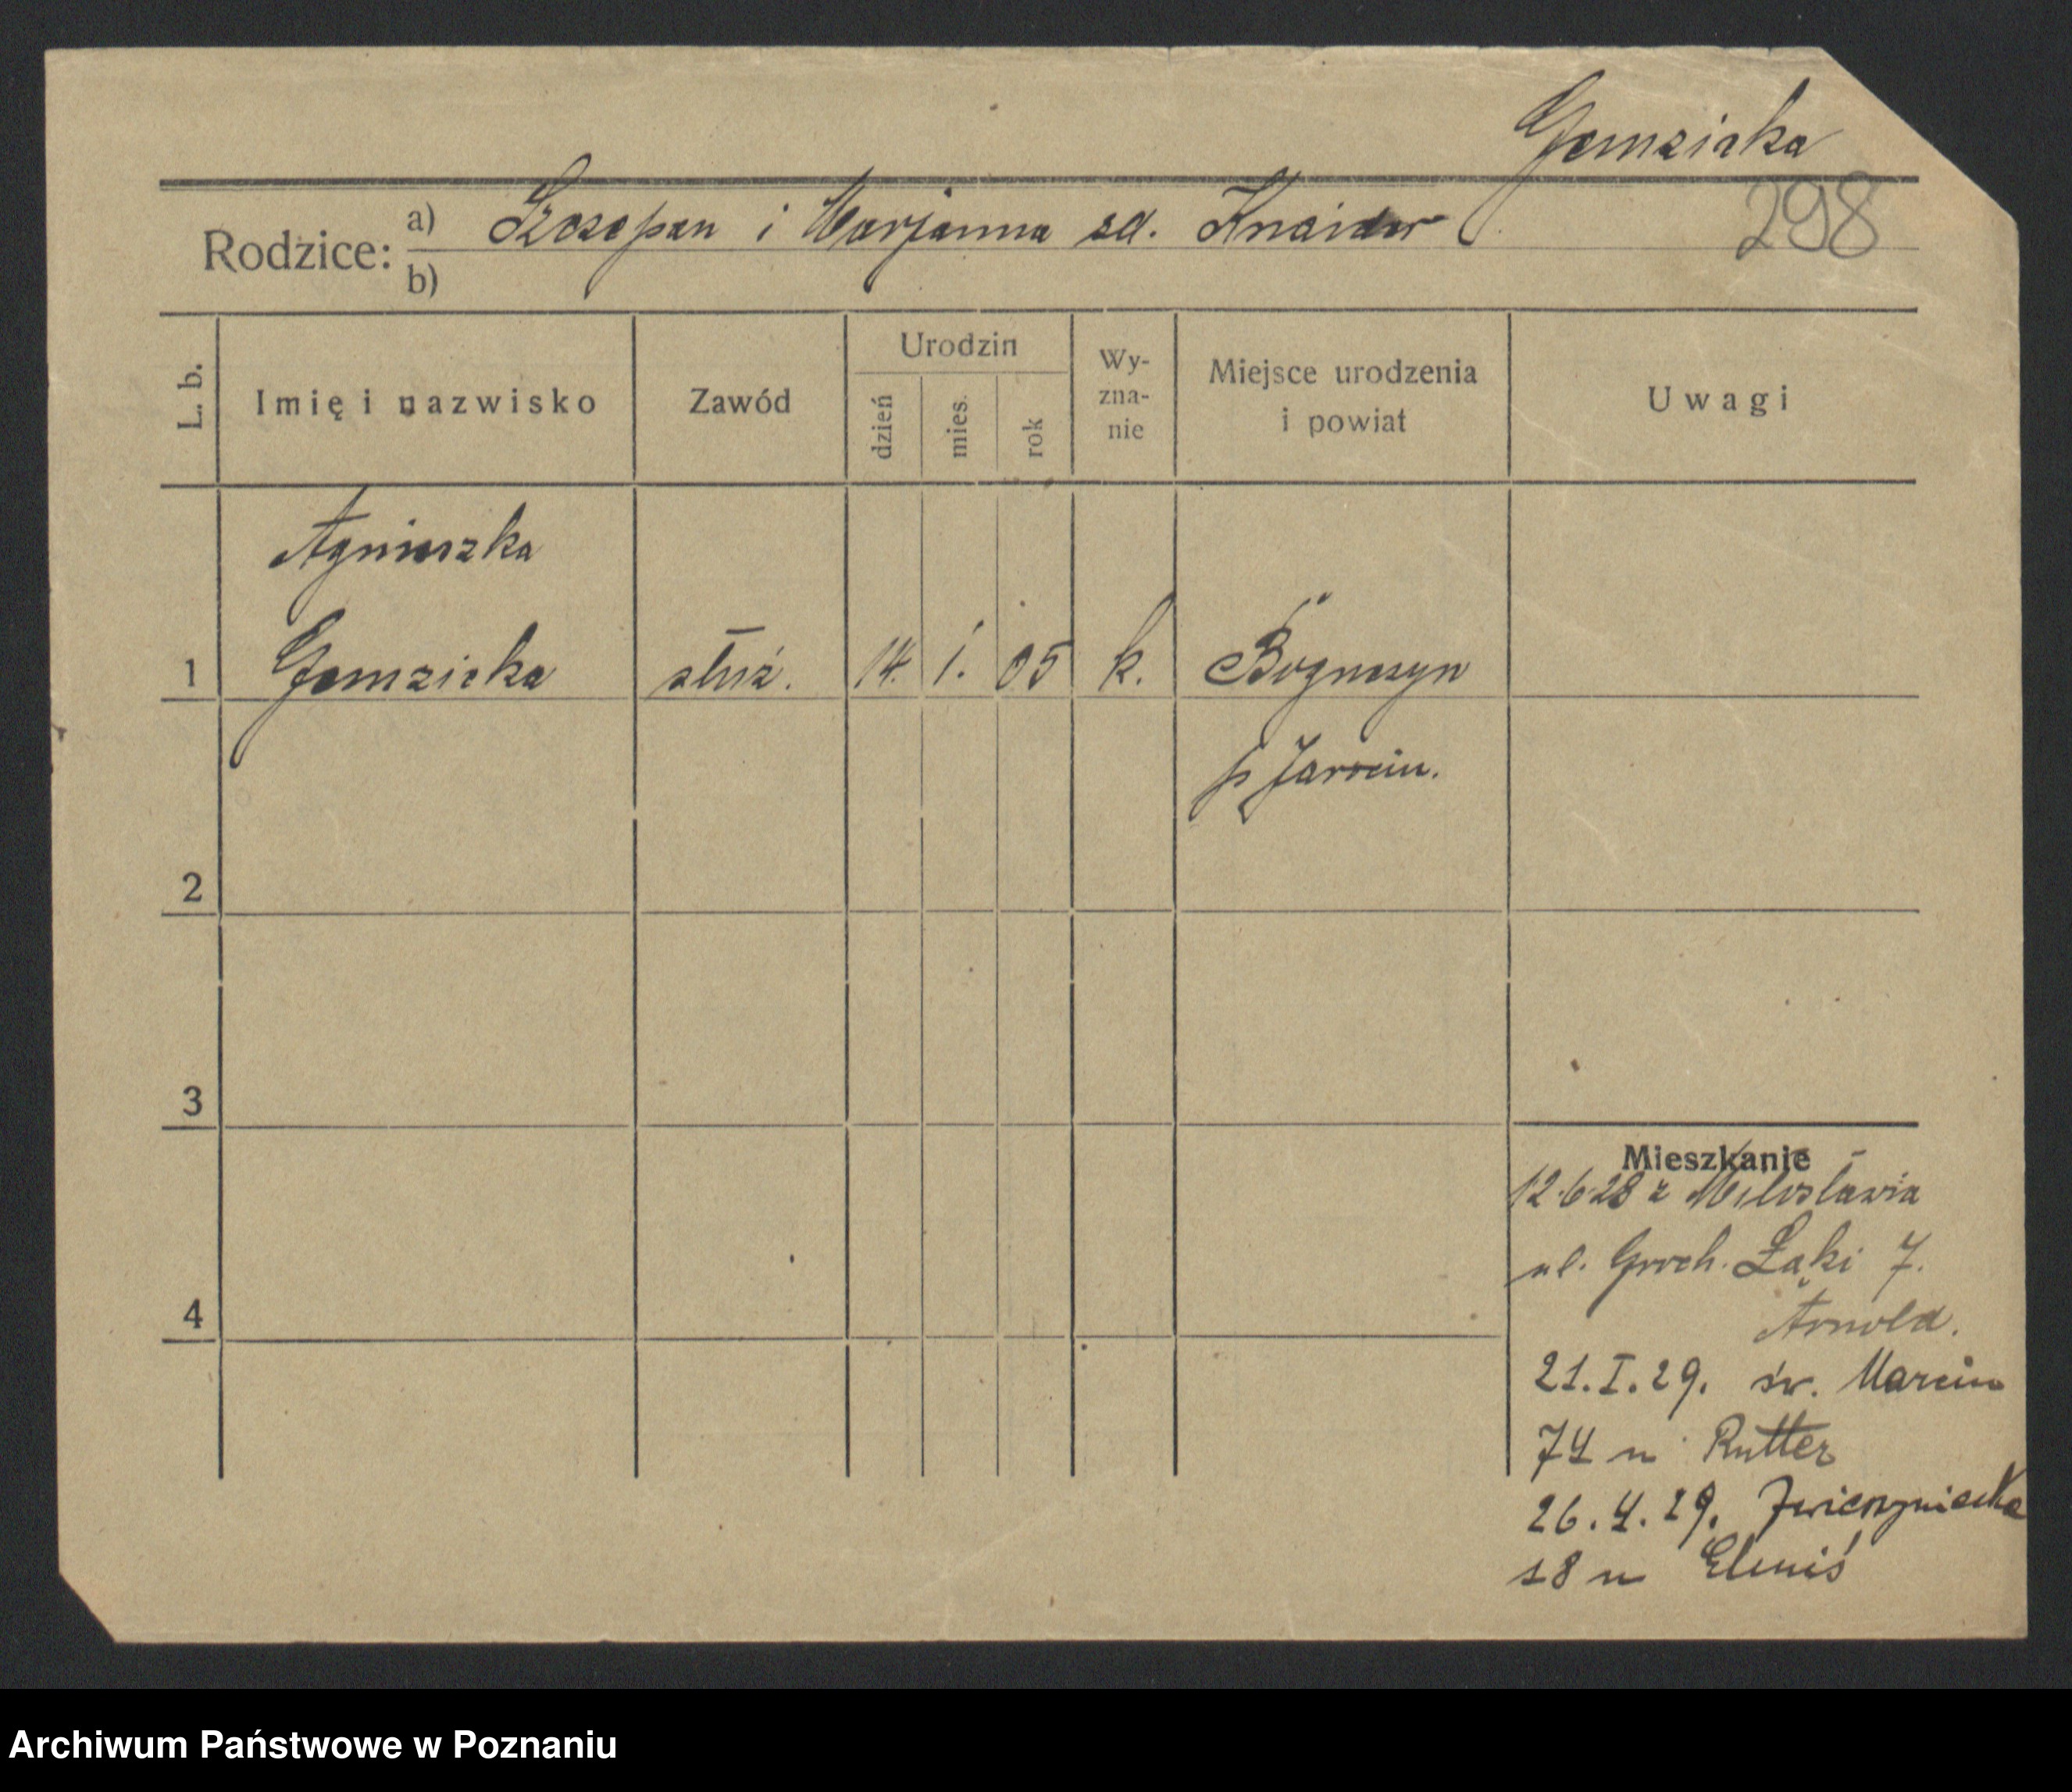 Gemzicka
298
Rodzice: a) Szczepan i Marjanna zd. Knaider
b)
L. b. Imię i nazwisko Zawód Urodzin dzień mies. rok Wy-zna-nie Miejsce urodzenia i powiat Uwagi
Agnieszka
1 Gemzicka służ. 14. 1. 05 k. Boguszyn
p Jarocin.
2
3
4
Mieszkanie
12.6.28 z Miłosławia
ul. Groch. Łąki 7.
Arnold.
21.I.29. św. Marcin
74 u Rutter
26.4.29. Zwierzyniecka
18 u
Archiwum Państwowe w Poznaniu